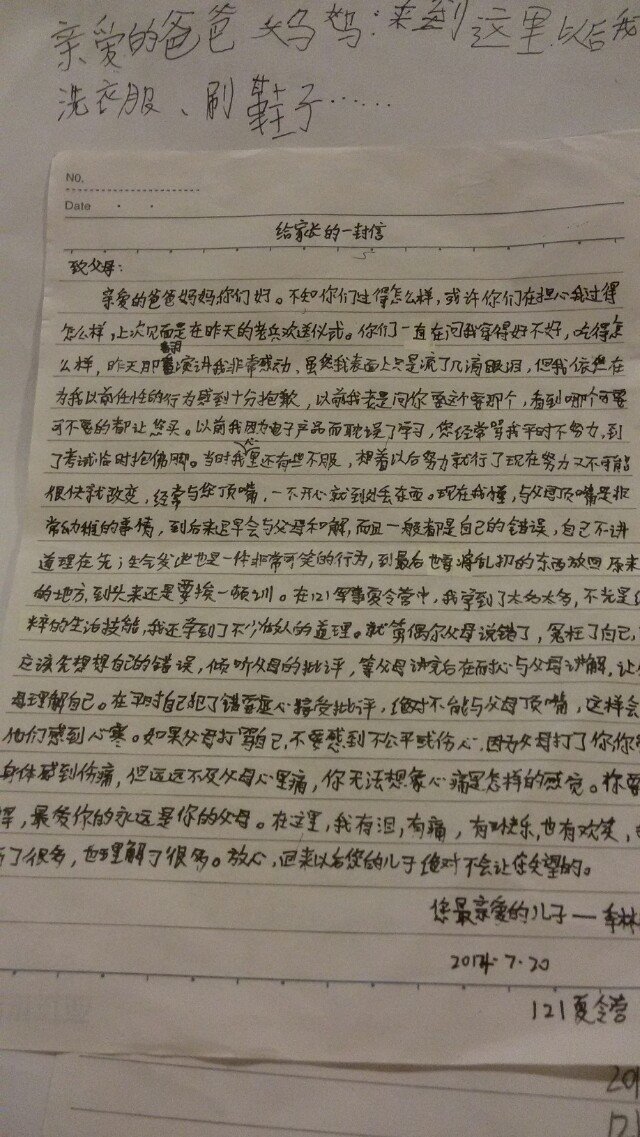 亲爱的爸爸妈妈:来到这里以后我
洗衣服、刷鞋子……
No.
Date
给家长的一封信
致父母:
亲爱的爸爸妈妈,你们好。不知你们过得怎么样,或许你们在担心我过得
怎么样,上次见面是在昨天的老兵欢送仪式。你们一直在问我穿得好不好,吃得怎
么样,昨天那演讲我非常感动,虽然我表面上只是流了几滴眼泪,但我依然在
为我以前任性的行为感到十分抱歉,以前我老是问你要这个要那个,看到哪个可要
可不要的都让您买。以前我因为电子产品而耽误了学习,您经常骂我平时不努力,到
了考试临时抱佛脚。当时我心里还有些不服,想着以后努力就行了现在努力又不可能
很快就改变,经常与您顶嘴,一不开心就到处丢东西。现在我懂,与父母顶嘴是非
常幼稚的事情,到后来迟早会与父母和解,而且一般都是自己的错误,自己不讲
道理在先;生气发泄也是一件非常可笑的行为,到最后也要将乱扔的东西放回原来
的地方,到头来还是要挨一顿训。在121军事夏令营中,我学到了太多太多,不光是
粹的生活技能,我还学到了不少做人的道理。就算偶尔父母说错了,冤枉了自己,
应该先想想自己的错误,倾听父母的批评,等父母讲完后在耐心与父母讲解,让
母理解自己。在平时自己犯了错要虚心接受批评,绝对不能与父母顶嘴,这样会
他们感到心寒。如果父母打骂自己,不要感到不公平或伤心,因为父母打了你你
身体感到伤痛,但远远不及父母心里痛,你无法想象心痛是怎样的感觉。你要
,最爱你的永远是你的父母。在这里,我有泪,有痛,有快乐,也有欢笑,
了很多,也理解了很多。放心,回来以后您的儿子绝对不会让您失望的。
您最亲爱的儿子—李林
2014.7.20
121夏令营
20